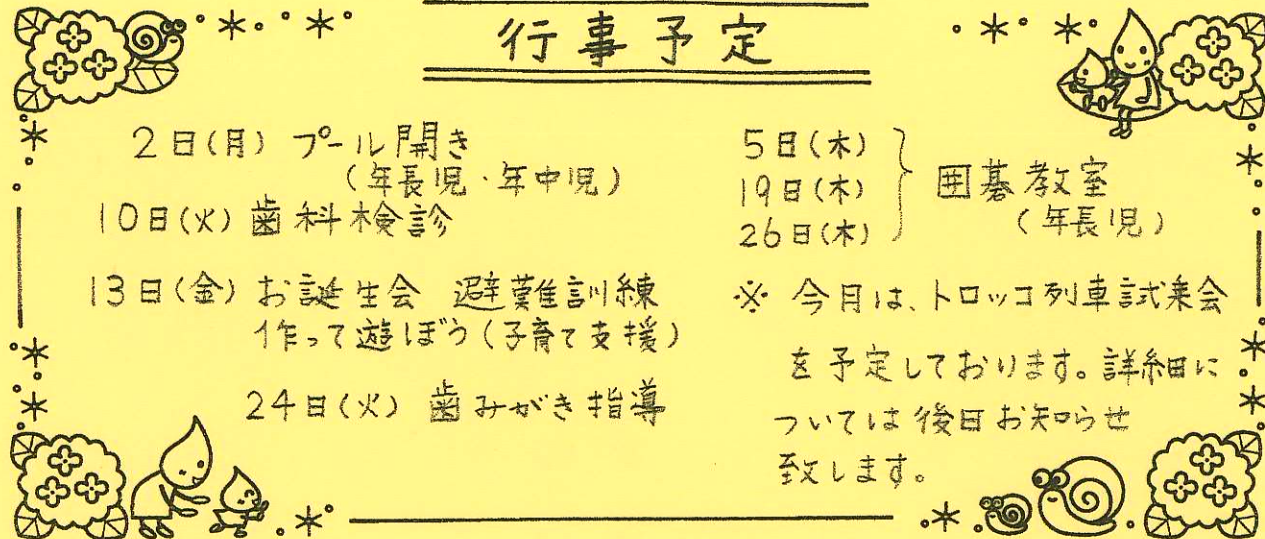 行事予定
2日(月) プール開き
(年長児・年中児)
10日(火) 歯科検診
13日(金) お誕生会 避難訓練
作って遊ぼう(子育て支援)
24日(火) 歯みがき指導
5日(木)
19日(木)
26日(木)
囲碁教室
(年長児)
※ 今月は、トロッコ列車試乗会
を予定しております。詳細に
ついては後日お知らせ
致します。